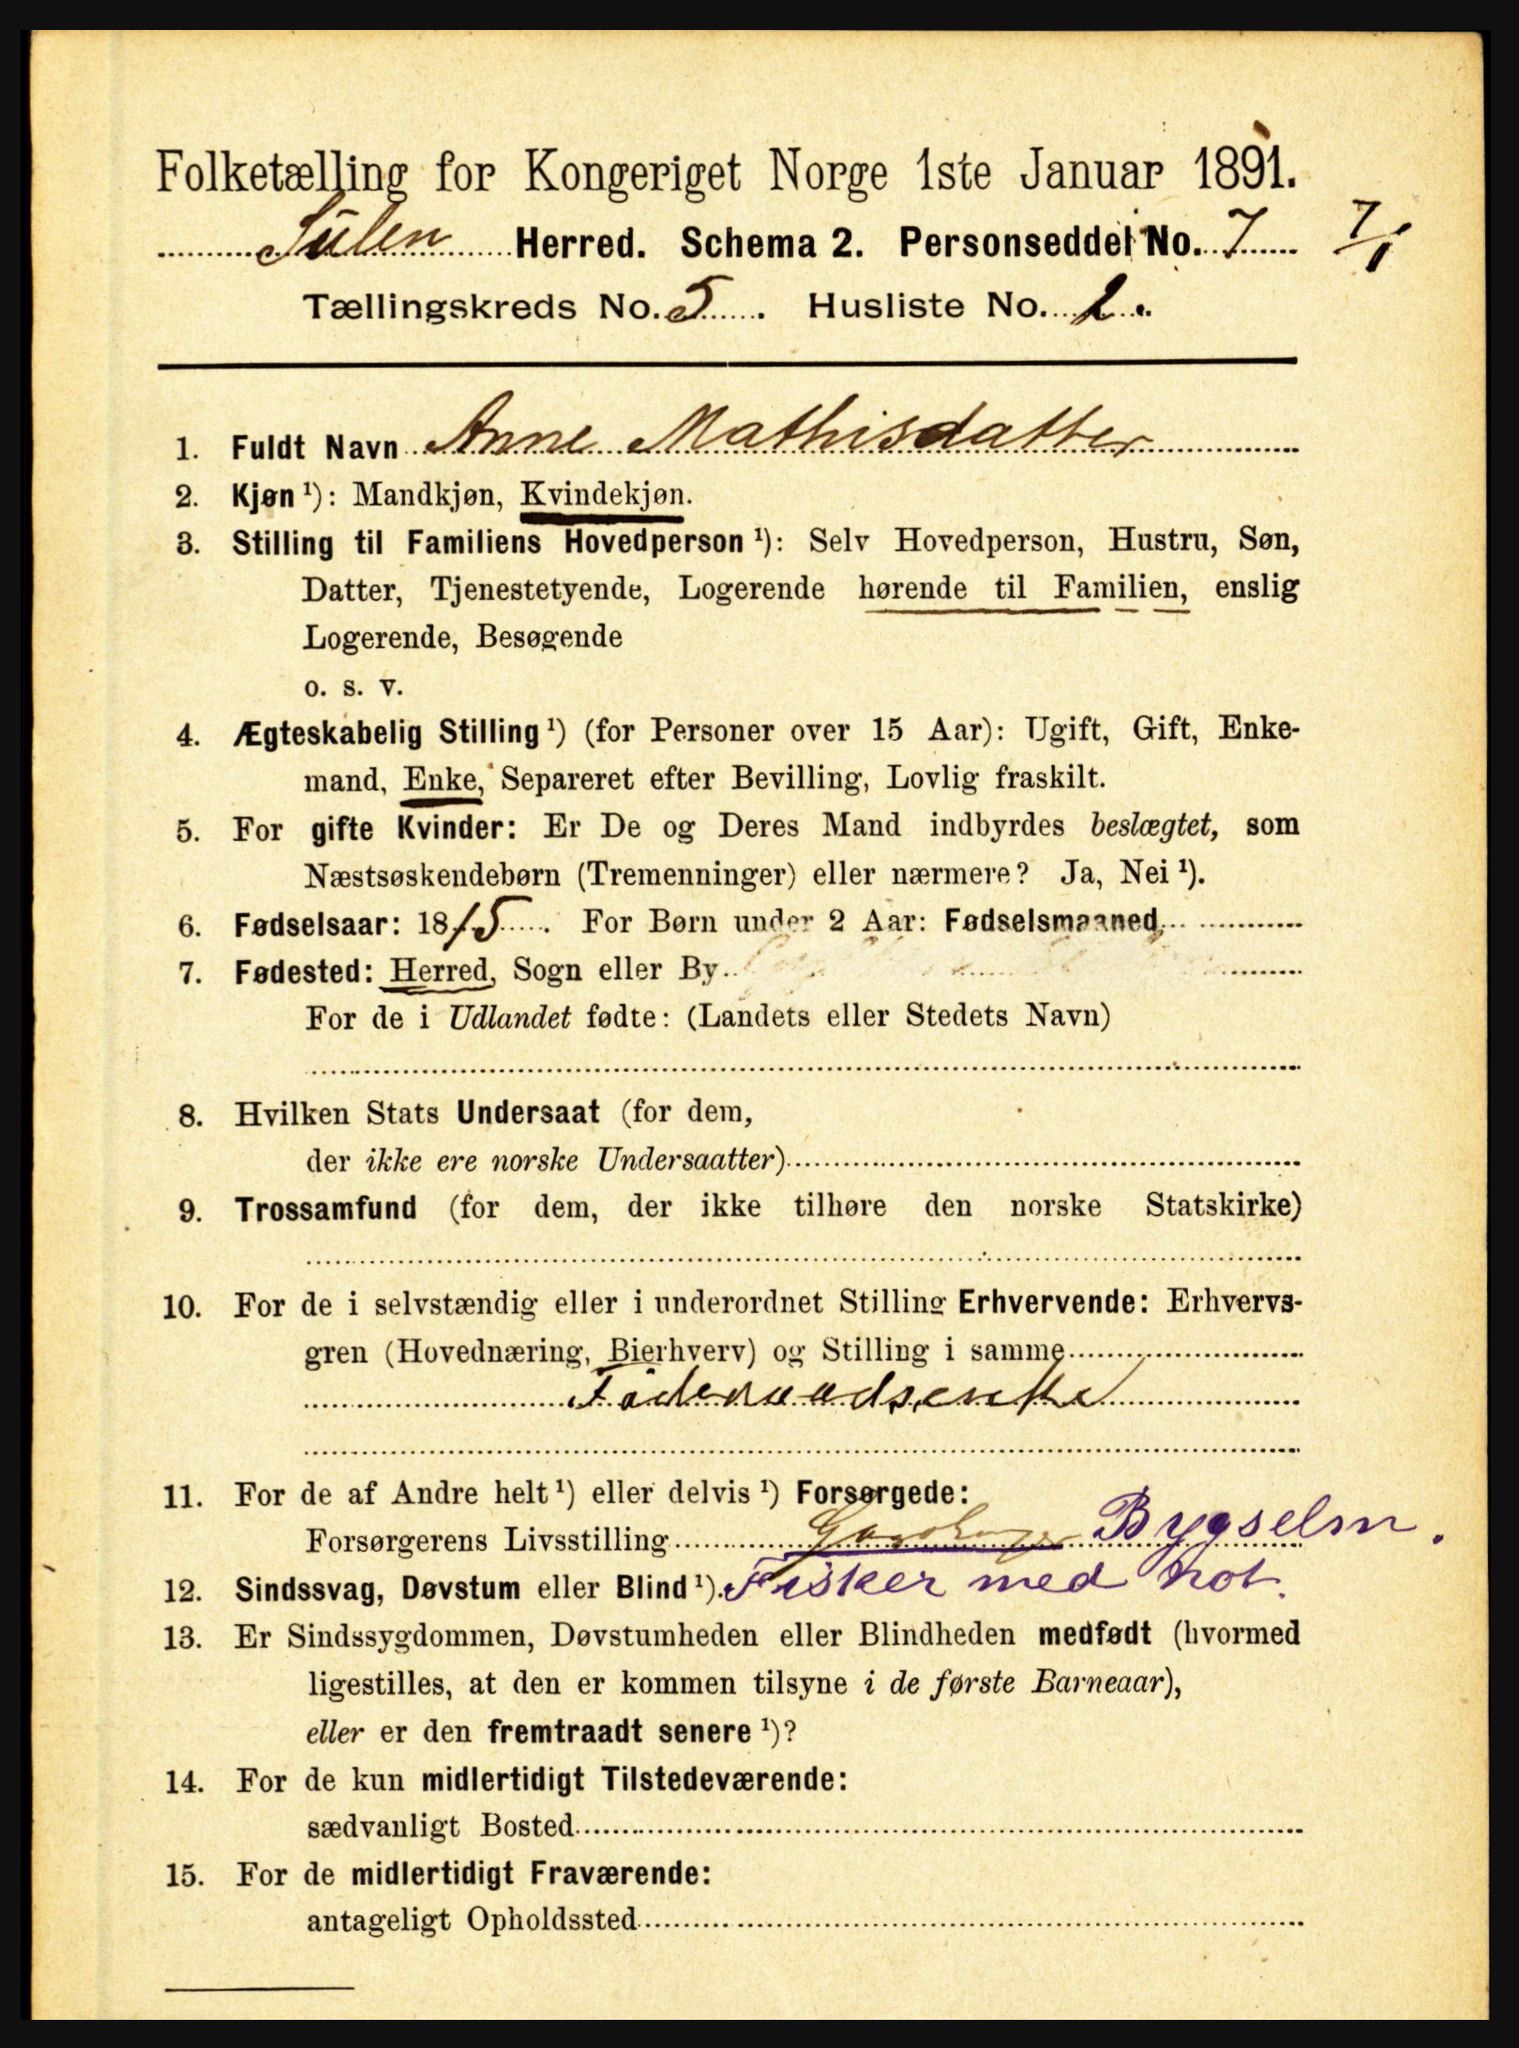 Folketælling for Kongeriget Norge 1ste Januar 1891.
Sulen Herred. Schema 2. Personseddel No. 7 7/1
Tællingskreds No. 5. Husliste No. 1.
1. Fuldt Navn Anne Mathisdatter
2. Kjøn ¹): Mandkjøn, Kvindekjøn.
3. Stilling til Familiens Hovedperson ¹): Selv Hovedperson, Hustru, Søn,
Datter, Tjenestetyende, Logerende hørende til Familien, enslig
Logerende, Besøgende
o. s. v.
4. Ægteskabelig Stilling ¹) (for Personer over 15 Aar): Ugift, Gift, Enke-
mand, Enke, Separeret efter Bevilling, Lovlig fraskilt.
5. For gifte Kvinder: Er De og Deres Mand indbyrdes beslægtet, som
Næstsøskendebørn (Tremenninger) eller nærmere? Ja, Nei ¹).
6. Fødselsaar: 1815. For Børn under 2 Aar: Fødselsmaaned
7. Fødested: Herred, Sogn eller By
For de i Udlandet fødte: (Landets eller Stedets Navn)
8. Hvilken Stats Undersaat (for dem,
der ikke ere norske Undersaatter)
9. Trossamfund (for dem, der ikke tilhøre den norske Statskirke)
10. For de i selvstændig eller i underordnet Stilling Erhvervende: Erhvervs-
gren (Hovednæring, Bierhverv) og Stilling i samme
Føderaadsenke
11. For de af Andre helt ¹) eller delvis ¹) Forsørgede:
Forsørgerens Livsstilling Gaardbruger Bygselm.
12. Sindssvag, Døvstum eller Blind ¹). Fisker med not.
13. Er Sindssygdommen, Døvstumheden eller Blindheden medfødt (hvormed
ligestilles, at den er kommen tilsyne i de første Barneaar),
eller er den fremtraadt senere ¹)?
14. For de kun midlertidigt Tilstedeværende:
sædvanligt Bosted
15. For de midlertidigt Fraværende:
antageligt Opholdssted